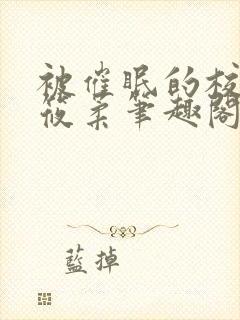 被催眠的校
筱柔笔趣阁
蓝掉